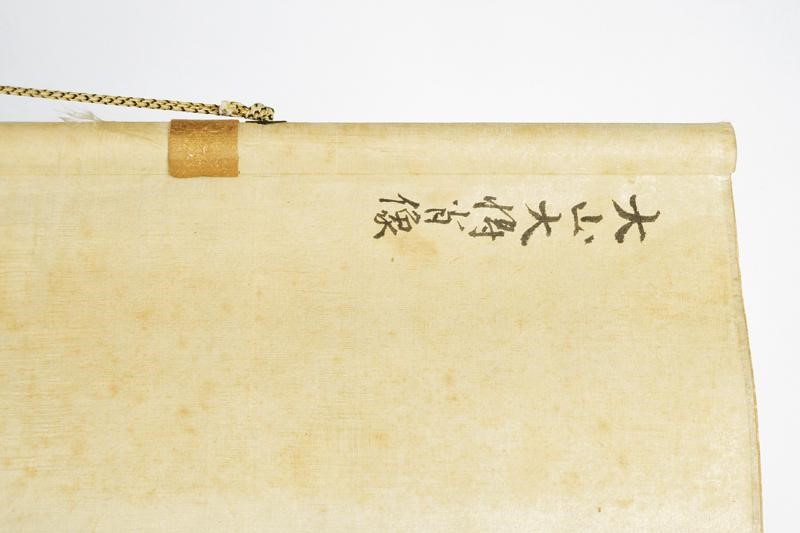 大山大将肖像